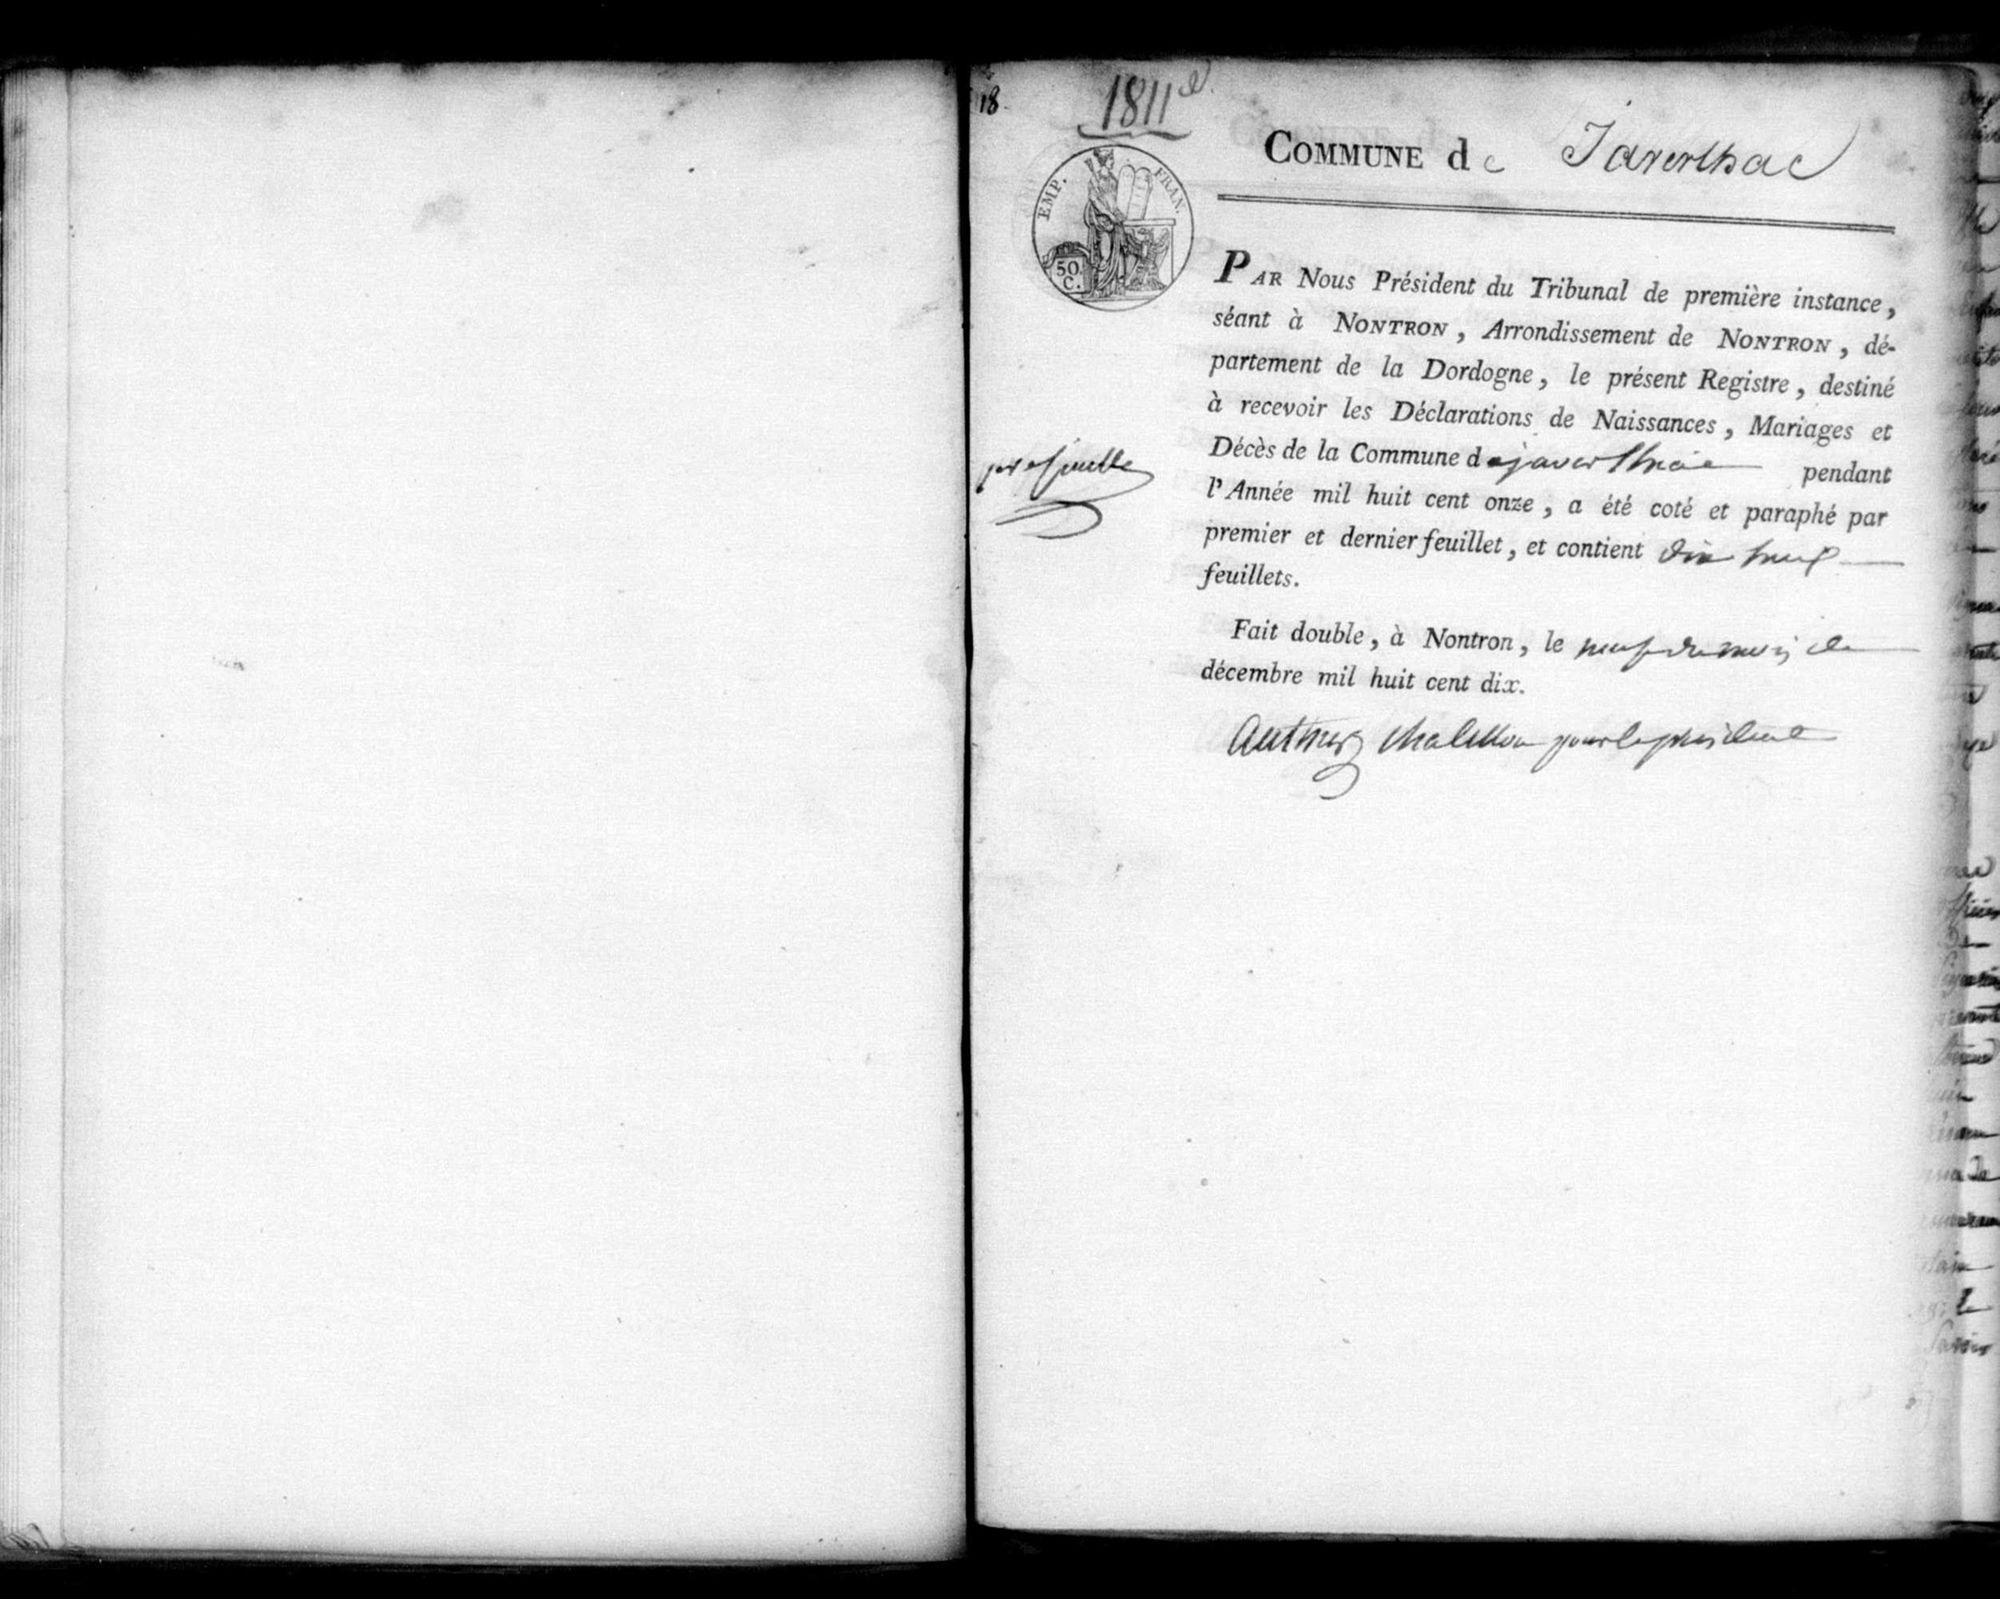 18
1811
EMP. FRAN.
50
C.
COMMUNE de Javerlhac
PAR Nous Président du Tribunal de première instance,
séant à NONTRON, Arrondissement de NONTRON, dé-
partement de la Dordogne, le présent Registre, destiné
à recevoir les Déclarations de Naissances, Mariages et
Décès de la Commune de javerlhac pendant
l'Année mil huit cent onze, a été coté et paraphé par
premier et dernier feuillet, et contient dix huit
feuillets.
Fait double, à Nontron, le neuf du mois de
décembre mil huit cent dix.
pour le président